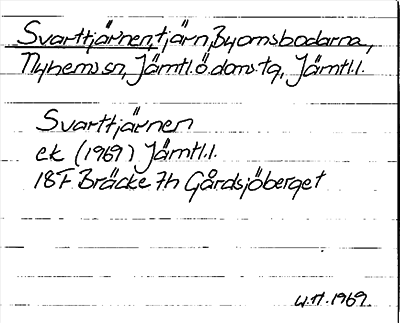 Svarttjärnen, tjärn, Byomsbodarna,
Nyhems sn, Jämtl.ö.doms.tg, Jämtl.l.
Svarttjärnen
ek (1969) Jämtl.l.
18F Bräcke 7h Gårdsjöberget
1969.